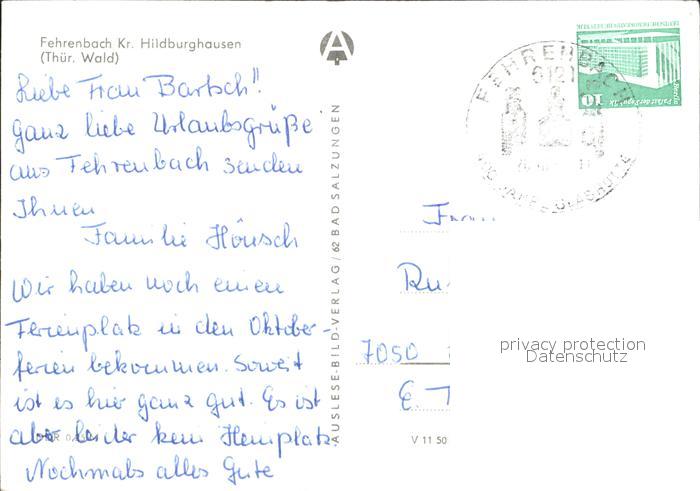 Fehrenbach Kr. Hildburghausen
(Thür. Wald)
Liebe Frau Bartsch!!
Ganz liebe Urlaubsgrüße
aus Fehrenbach senden
Ihnen
Familie Hönsch
Wir haben noch einen
Ferienplatz in den Oktober-
ferien bekommen. Soweit
ist es hier ganz gut. Es ist
aber leider kein Heimplatz.
Nochmals alles Gute
A
AUSLESE-BILD-VERLAG / 62 BAD SALZUNGEN
V 11 50
FEHRENBACH
6121
DEUTSCHE DEMOKRATISCHE REPUBLIK
10
Berlin
Palast der Republik
7050
privacy protection
Datenschutz